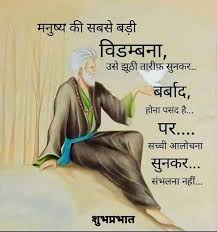 मनुष्य की सबसे बड़ी
विडम्बना,
उसे झूठी तारीफ़ सुनकर..
बर्बाद,
होना पसंद है...
पर....
सच्ची आलोचना
सुनकर...
संभलना नहीं...
शुभप्रभात